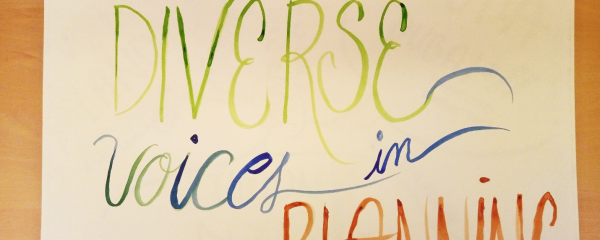 DIVERSE
voices in
PLANNING